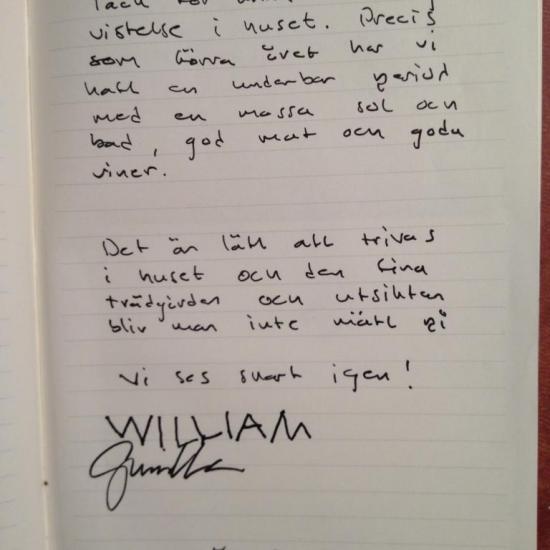 Tack för
vistelse i huset. Precis
som förra året har vi
haft en underbar period
med en massa sol och
bad, god mat och goda
viner.
Det är lätt att trivas
i huset och den fina
trädgården och utsikten
blir man inte mätt på
Vi ses snart igen!
WILLIAM
Gunilla